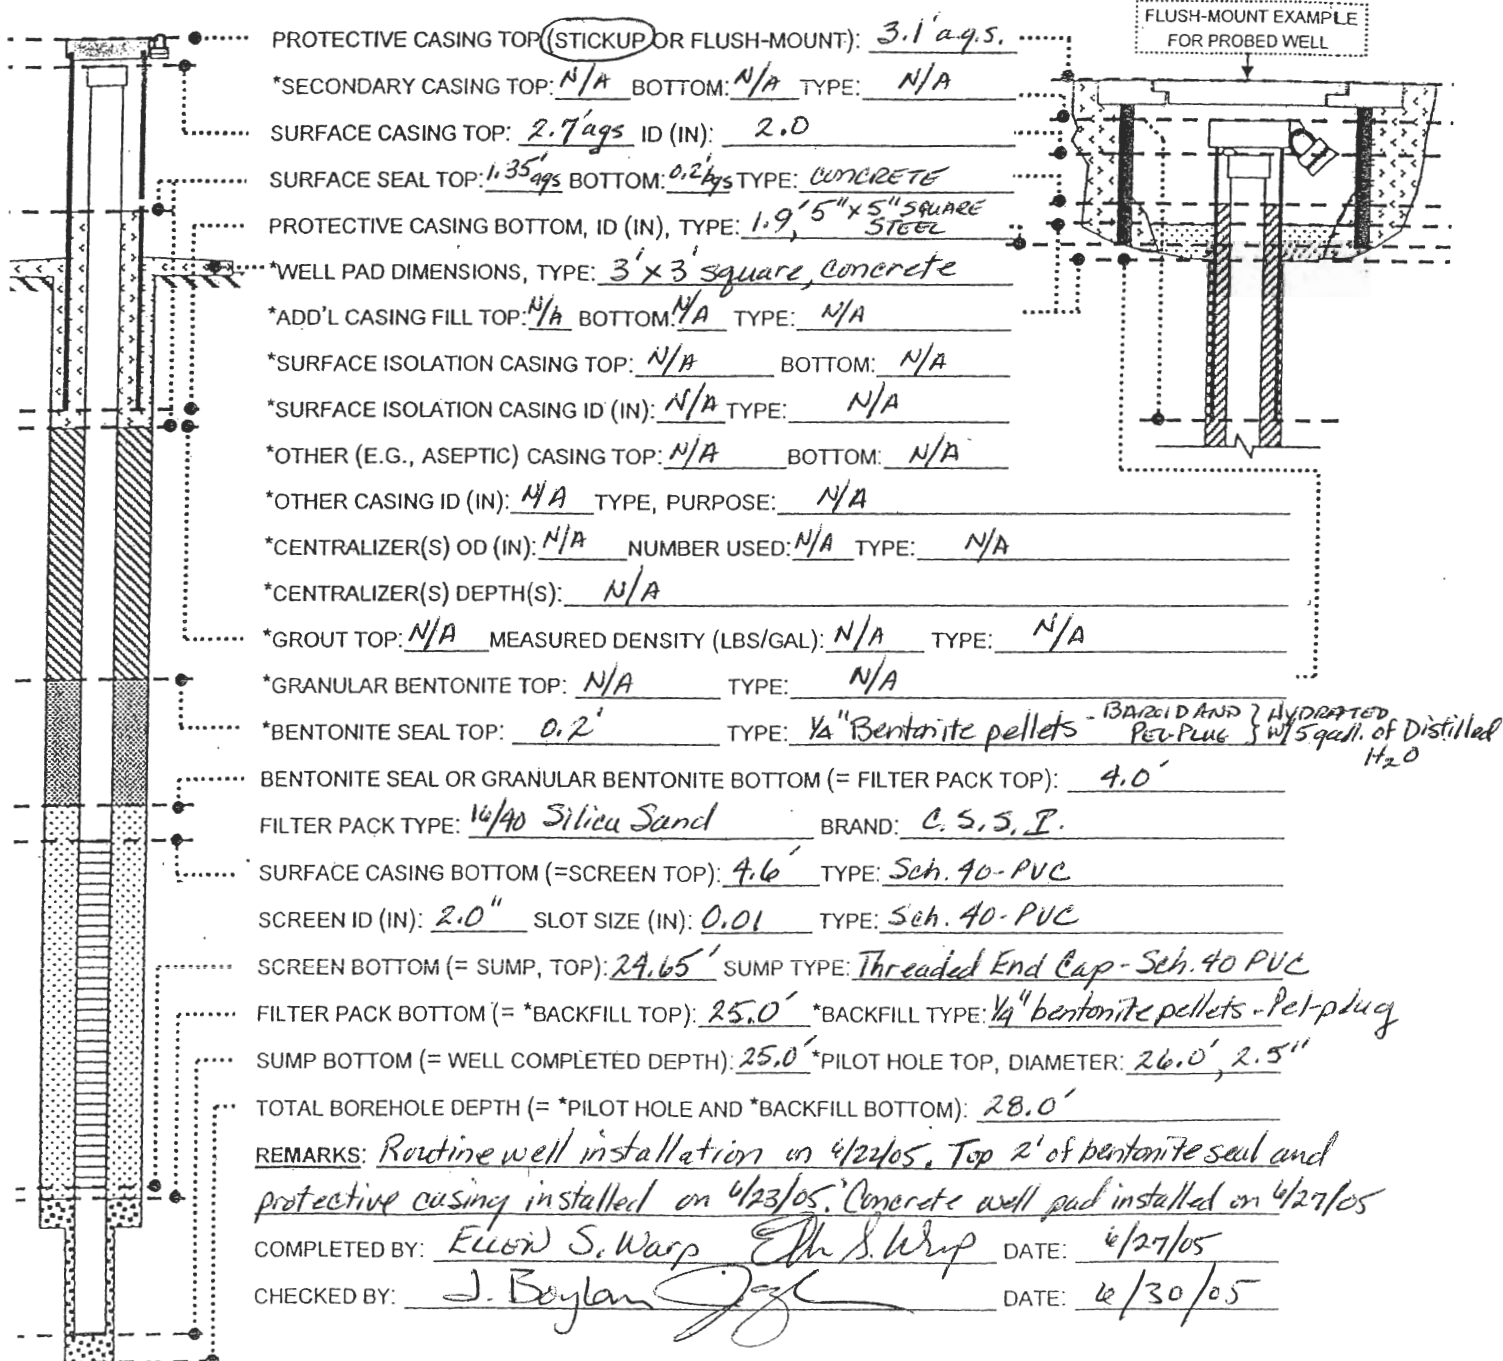 FLUSH-MOUNT EXAMPLE
FOR PROBED WELL
PROTECTIVE CASING TOP (STICKUP OR FLUSH-MOUNT): 3.1' a.g.s.
*SECONDARY CASING TOP: N/A BOTTOM: N/A TYPE: N/A
SURFACE CASING TOP: 2.7' ags ID (IN): 2.0
SURFACE SEAL TOP: 1.35' ags BOTTOM: 0.2' bgs TYPE: CONCRETE
PROTECTIVE CASING BOTTOM, ID (IN), TYPE: 1.9', 5" x 5" SQUARE STEEL
*WELL PAD DIMENSIONS, TYPE: 3' x 3' square, Concrete
*ADD'L CASING FILL TOP: N/A BOTTOM: N/A TYPE: N/A
*SURFACE ISOLATION CASING TOP: N/A BOTTOM: N/A
*SURFACE ISOLATION CASING ID (IN): N/A TYPE: N/A
*OTHER (E.G., ASEPTIC) CASING TOP: N/A BOTTOM: N/A
*OTHER CASING ID (IN): N/A TYPE, PURPOSE: N/A
*CENTRALIZER(S) OD (IN): N/A NUMBER USED: N/A TYPE: N/A
*CENTRALIZER(S) DEPTH(S): N/A
*GROUT TOP: N/A MEASURED DENSITY (LBS/GAL): N/A TYPE: N/A
*GRANULAR BENTONITE TOP: N/A TYPE: N/A
*BENTONITE SEAL TOP: 0.2' TYPE: 1/4" Bentonite pellets - BAROID AND PEL-PLUG } HYDRATED W/5 gall. of Distilled H2O
BENTONITE SEAL OR GRANULAR BENTONITE BOTTOM (= FILTER PACK TOP): 4.0'
FILTER PACK TYPE: 16/40 Silica Sand BRAND: C.S.S.I.
SURFACE CASING BOTTOM (=SCREEN TOP): 4.6' TYPE: Sch. 40-PVC
SCREEN ID (IN): 2.0" SLOT SIZE (IN): 0.01 TYPE: Sch. 40-PVC
SCREEN BOTTOM (= SUMP, TOP): 24.65' SUMP TYPE: Threaded End Cap - Sch. 40 PVC
FILTER PACK BOTTOM (= *BACKFILL TOP): 25.0' *BACKFILL TYPE: 1/4" bentonite pellets - Pel-plug
SUMP BOTTOM (= WELL COMPLETED DEPTH): 25.0' *PILOT HOLE TOP, DIAMETER: 26.0', 2.5"
TOTAL BOREHOLE DEPTH (= *PILOT HOLE AND *BACKFILL BOTTOM): 28.0'
REMARKS: Routine well installation on 6/22/05. Top 2' of bentonite seal and
protective casing installed on 6/23/05. Concrete well pad installed on 6/27/05
COMPLETED BY: Ellen S. Warp DATE: 6/27/05
CHECKED BY: J. Boylan DATE: 6/30/05